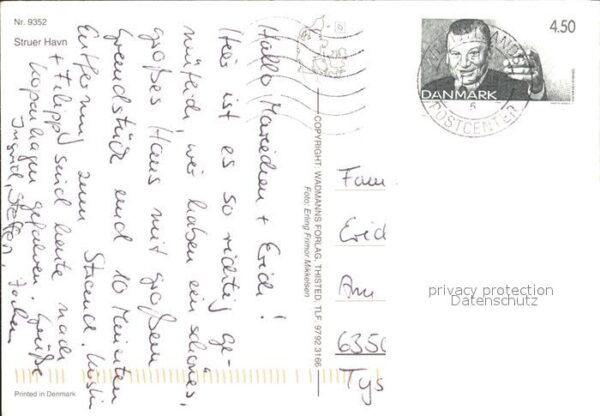 Nr. 9352
Struer Havn
Hallo Mariechen + Erich!
Hier ist es so richtig ge-
mütlich, wir haben ein schönes,
großes Haus mit großem
Grundstück und 10 Minuten
Entfernung zum Strand. Kerstin
+ Filipp sind heute nach
Kopenhagen gefahren. Grüße
Ingrid, Steffen, Jochen
Printed in Denmark
COPYRIGHT: WADMANNS FORLAG, THISTED, TLF. 9792 3166
Foto: Erling Frimor Mikkelsen
4.50
DANMARK
POSTCENTER
Fam.
Eric
Am
6350
Tys
privacy protection
Datenschutz